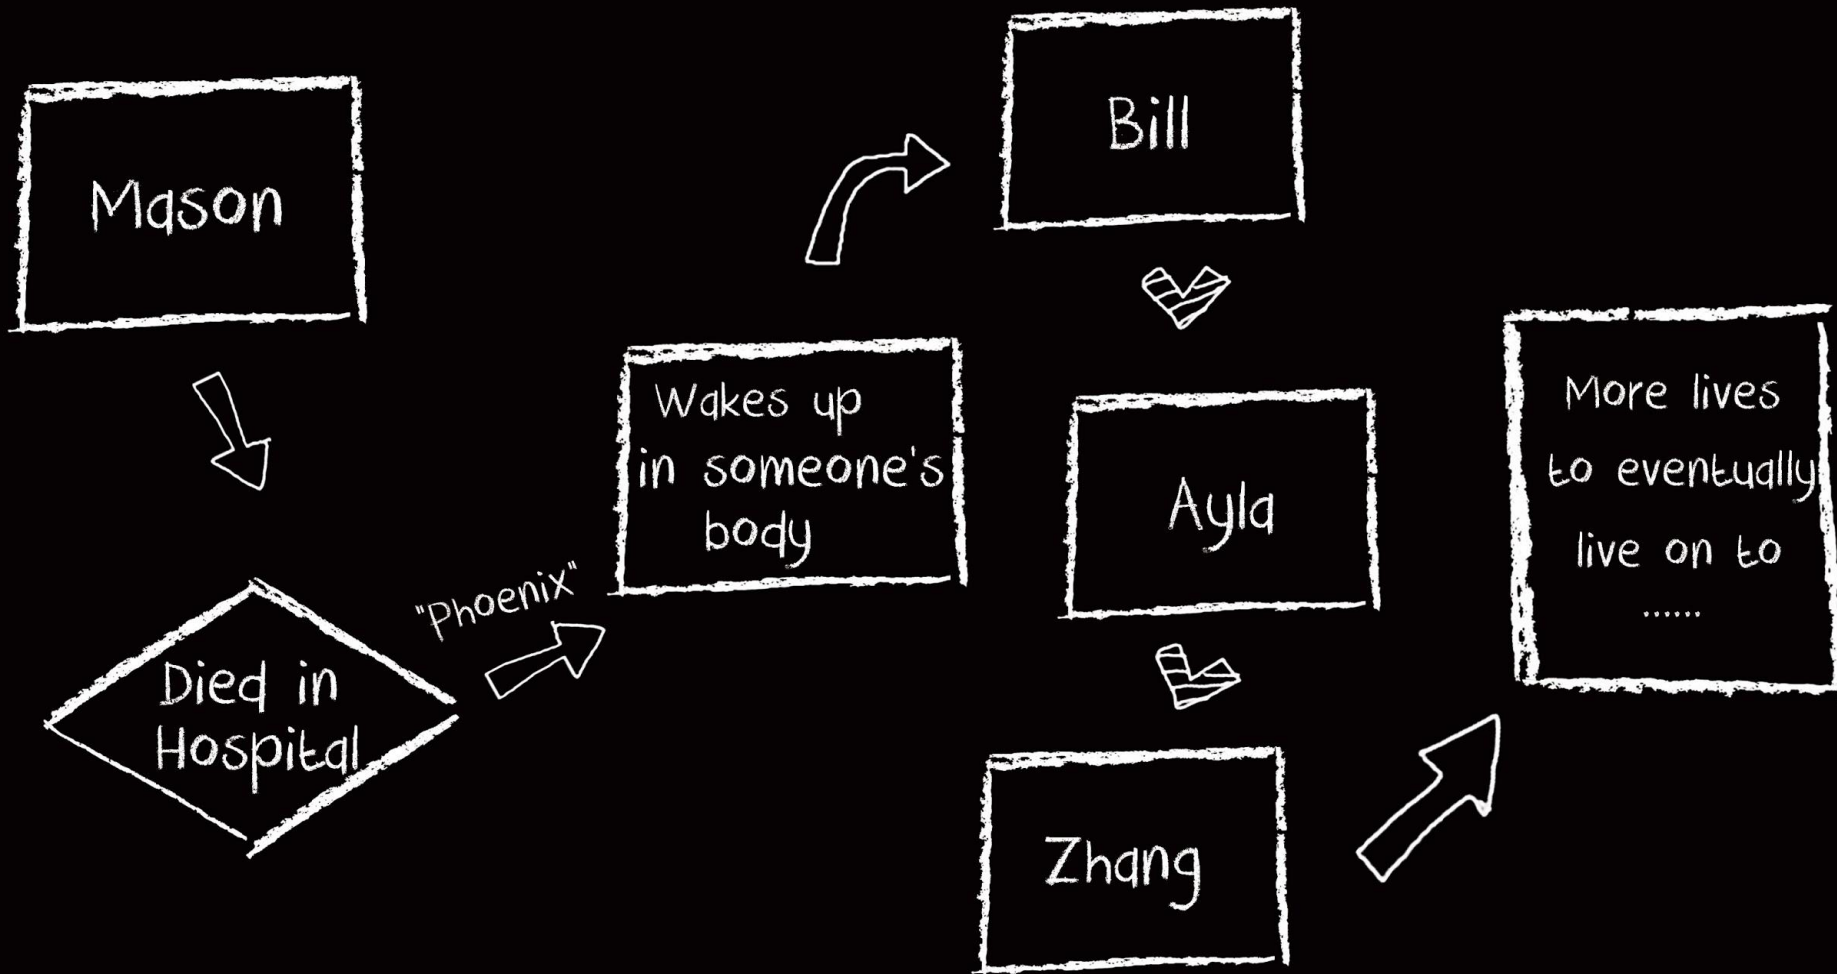 Mason
Died in
Hospital
"Phoenix"
Wakes up
in someone's
body
Bill
Ayla
Zhang
More lives
to eventually
live on to
......